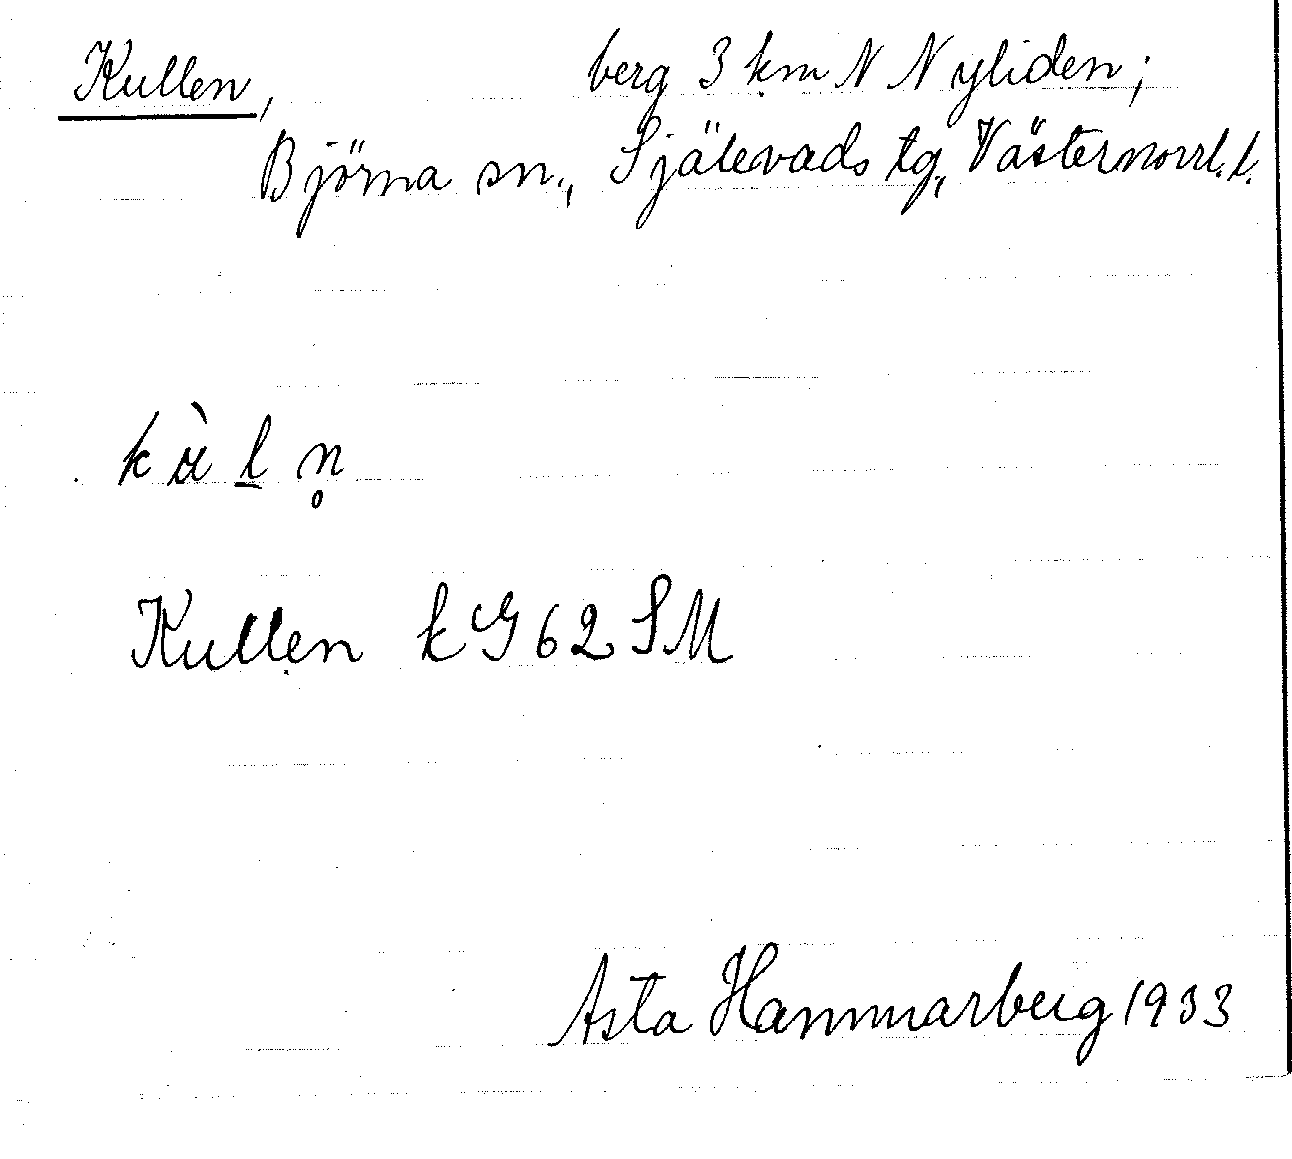 Kullen, berg 3 km N Nyliden;
Björna sn., Själevads tg., Västernorrl. l.
kù̀l̲n̥
Kullen k G 62 SM
Asta Hammarberg 1933